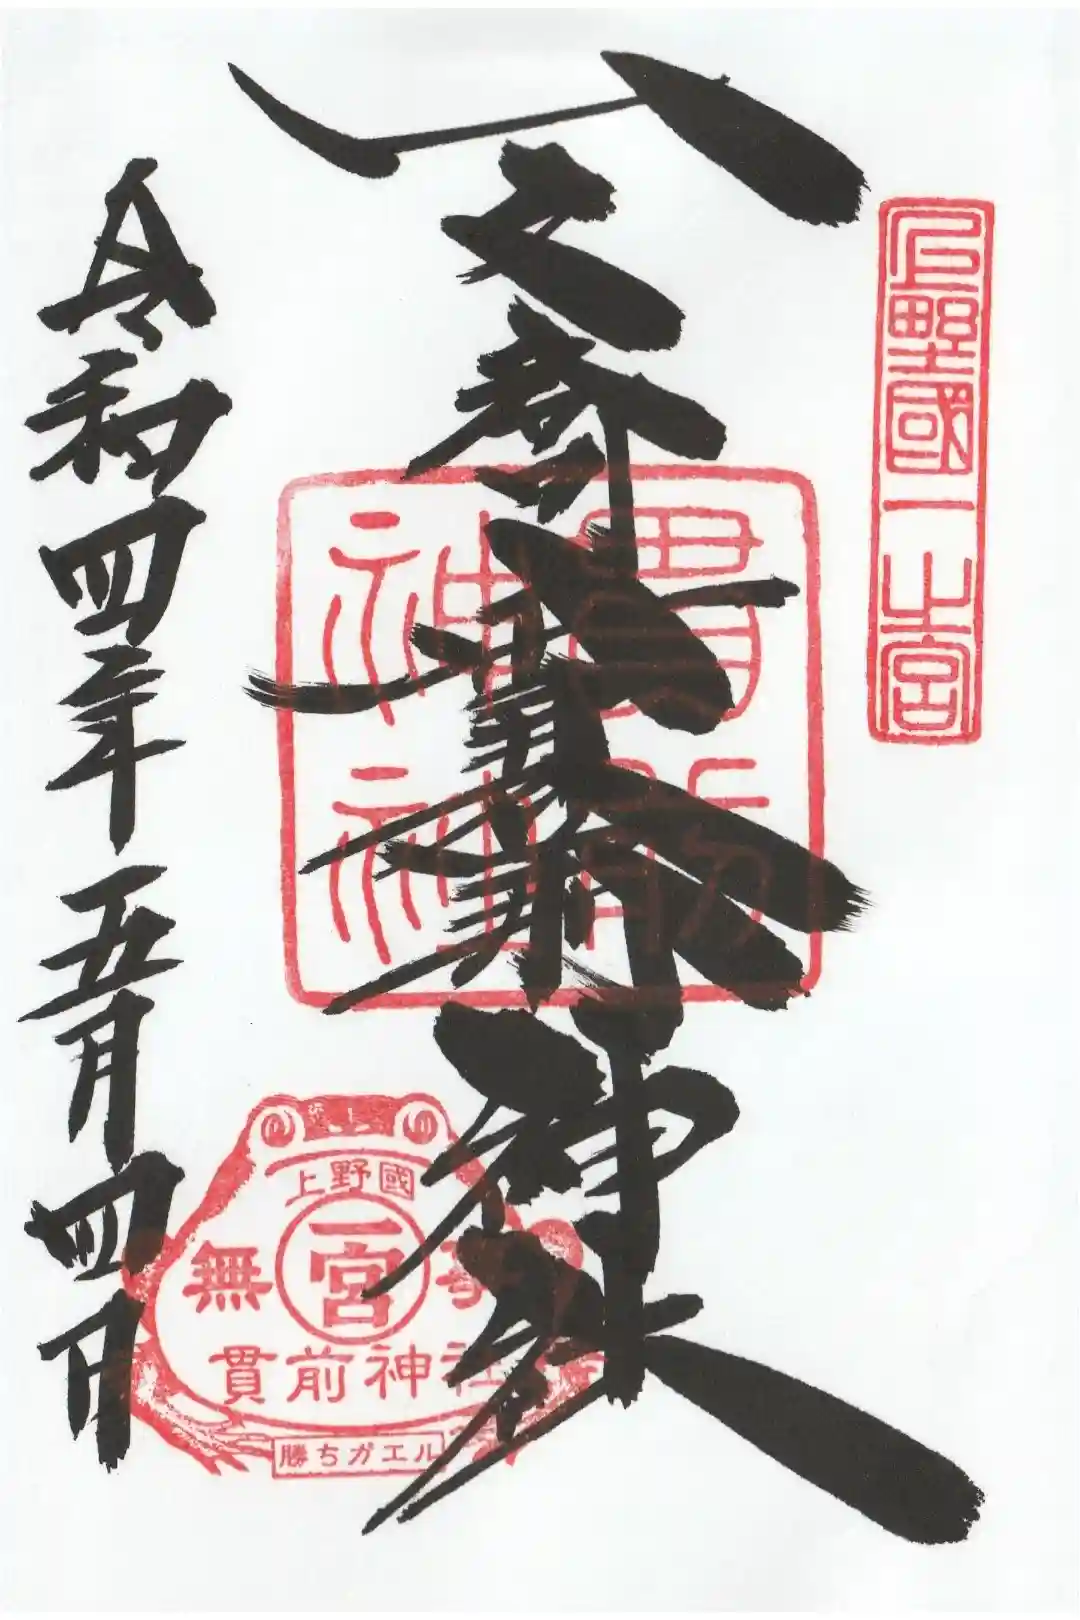 上野國一之宮
一之宮貫前神社
貫前神社
令和四年五月四日
上野國
一宮
無事
貫前神社
勝ちガエル